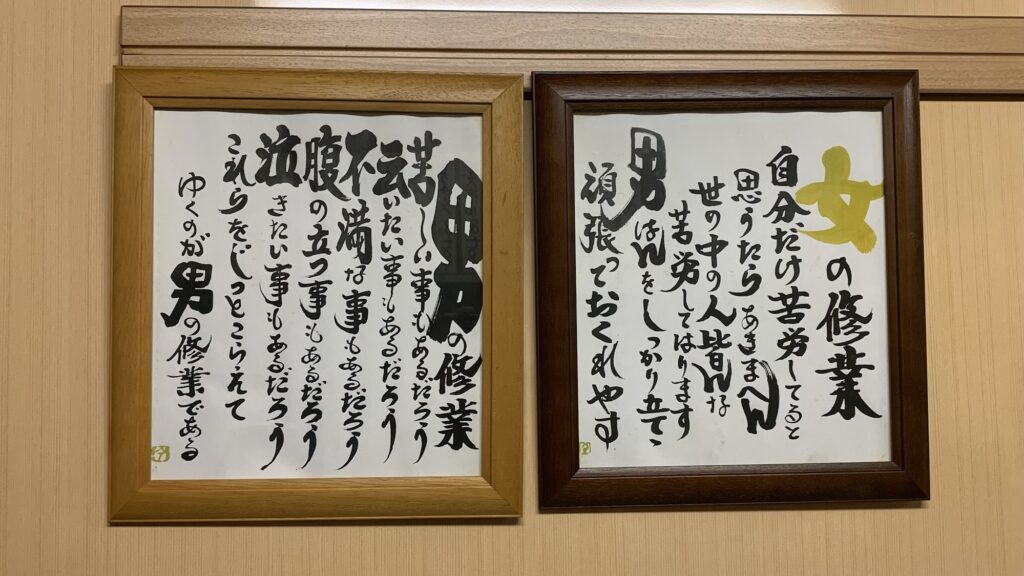 女の修業
自分だけ苦労してると
思うたらあきまへん
世の中の人皆んな
苦労してはります
男はんをしっかり立てゝ
頑張っておくれやす
男の修業
苦しい事もあるだろう
云いたい事もあるだろう
不満な事もあるだろう
腹の立つ事もあるだろう
泣きたい事もあるだろう
これらをじっとこらえて
ゆくのが男の修業である